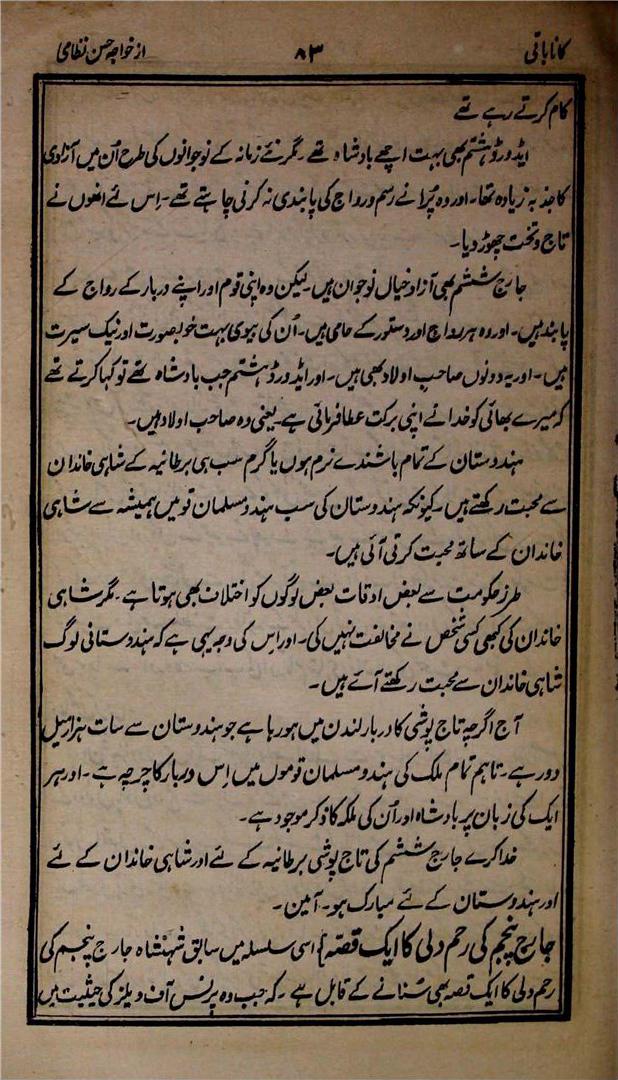 کانا باتی ۸۳ از خواجہ حسن نظامی
کام کرتے رہے تھے
ایڈورڈ ہشتم بھی بہت اچھے بادشاہ تھے۔ مگر نئے زمانہ کے نوجوانوں کی طرح اُن میں آزادی
کا جذبہ زیادہ تھا۔ اور وہ پُرانے رسم و رواج کی پابندی نہ کرنی چاہتے تھے۔ اِس لئے انھوں نے
تاج و تخت چھوڑ دیا۔
جارج ششم بھی آزاد خیال نوجوان ہیں۔ لیکن وہ اپنی قوم اور اپنے دربار کے رواج کے
پابند ہیں۔ اور وہ ہر رواج اور دستور کے حامی ہیں۔ اُن کی بیوی بہت خوبصورت اور نیک سیرت
ہیں۔ اور یہ دونوں صاحبِ اولاد بھی ہیں۔ اور ایڈورڈ ہشتم جب بادشاہ تھے تو کہا کرتے تھے
کہ میرے بھائی کو خدا نے اپنی برکت عطا فرمائی ہے۔ یعنی وہ صاحب اولاد ہیں۔
ہندوستان کے تمام باشندے نرم ہوں یا گرم سب ہی برطانیہ کے شاہی خاندان
سے محبت رکھتے ہیں۔ کیونکہ ہندوستان کی سب ہندو مسلمان قومیں ہمیشہ سے شاہی
خاندان کے ساتھ محبت کرتی آئی ہیں۔
طرز حکومت سے بعض اوقات بعض لوگوں کو اختلاف بھی ہوتا ہے۔ مگر شاہی
خاندان کی کبھی کسی شخص نے مخالفت نہیں کی۔ اور اس کی وجہ یہی ہے کہ ہندوستانی لوگ
شاہی خاندان سے محبت رکھتے آئے ہیں۔
آج اگرچہ تاج پوشی کا دربار لندن میں ہو رہا ہے جو ہندوستان سے سات ہزار میل
دور ہے۔ تاہم تمام ملک کی ہندو مسلمان قوموں میں اِس دربار کا چرچہ ہے۔ اور ہر
ایک کی زبان پر بادشاہ اور اُن کی ملکہ کا ذکر موجود ہے۔
خدا کرے جارج ششم کی تاج پوشی برطانیہ کے لئے اور شاہی خاندان کے لئے
اور ہندوستان کے لئے مبارک ہو۔ آمین۔
جارج پنجم کی رحم دلی کا ایک قصہ} اسی سلسلہ میں سابق شہنشاہ جارج پنجم کی
رحم دلی کا ایک قصہ بھی سُنانے کے قابل ہے۔ کہ جب وہ پرنس آف ویلز کی حیثیت میں